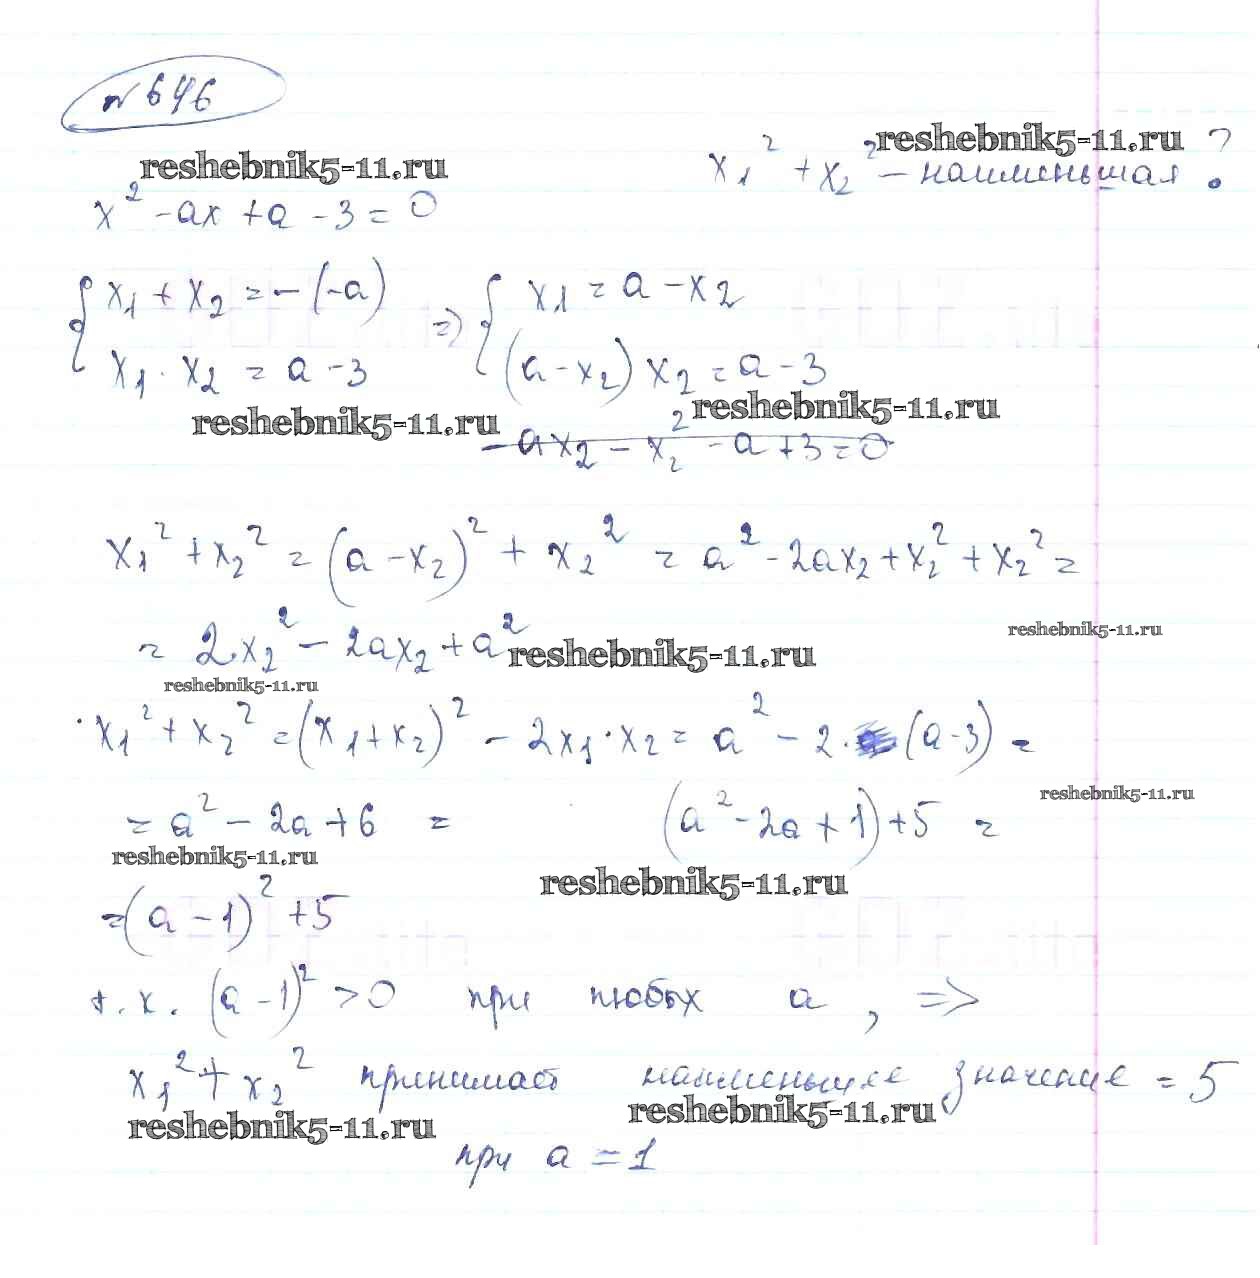 № 646
reshebnik5-11.ru
x₁² + x₂² – наименьшая ?
reshebnik5-11.ru
x² - ax + a - 3 = 0
{ x₁ + x₂ = -(-a) => { x₁ = a - x₂
x₁ · x₂ = a - 3 (a - x₂) x₂ = a - 3
reshebnik5-11.ru reshebnik5-11.ru
ax₂ - x₂² - a + 3 = 0
x₁² + x₂² = (a - x₂)² + x₂² = a² - 2ax₂ + x₂² + x₂² =
= 2x₂² - 2ax₂ + a²
reshebnik5-11.ru
reshebnik5-11.ru
reshebnik5-11.ru
x₁² + x₂² = (x₁ + x₂)² - 2x₁ · x₂ = a² - 2 · (a - 3) =
reshebnik5-11.ru
= a² - 2a + 6 = (a² - 2a + 1) + 5 =
reshebnik5-11.ru
reshebnik5-11.ru
= (a - 1)² + 5
т. к. (a - 1)² > 0 при любых a, =>
x₁² + x₂² принимает наименьшее значение = 5
reshebnik5-11.ru reshebnik5-11.ru
при a = 1